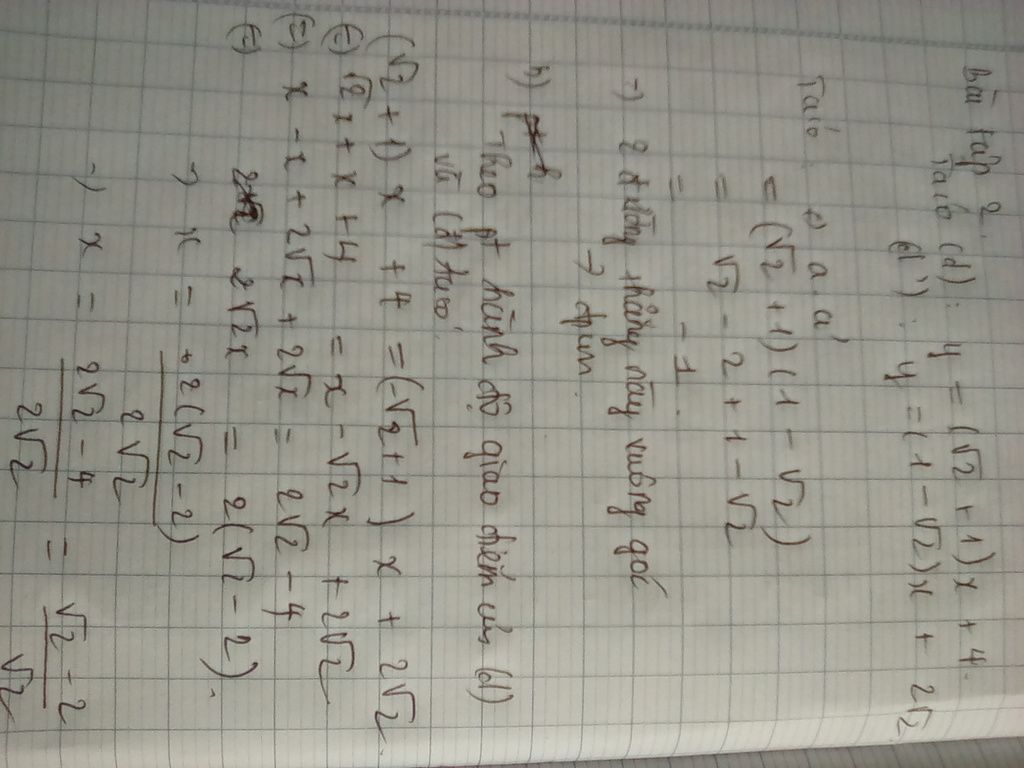 Bài tập 2.
Ta có (d): y = (√2 + 1)x + 4.
(d'): y = (1 - √2)x + 2√2.
Ta có a . a'
= (√2 + 1)(1 - √2)
= √2 - 2 + 1 - √2
= - 1.
=) 2 đường thẳng này vuông góc
→ đpcm.
b)
Theo pt hành độ giao điểm của (d)
và (d') ta có
(√2 + 1)x + 4 = (-√2 + 1)x + 2√2.
(=) √2x + x + 4 = x - √2x + 2√2
(=) x - x + 2√x + 2√x = 2√2 - 4
(=) 2√2x = 2(√2 - 2).
=) x = 2(√2 - 2) / 2√2
=) x = 2√2 - 4 / 2√2 = √2 - 2 / √2